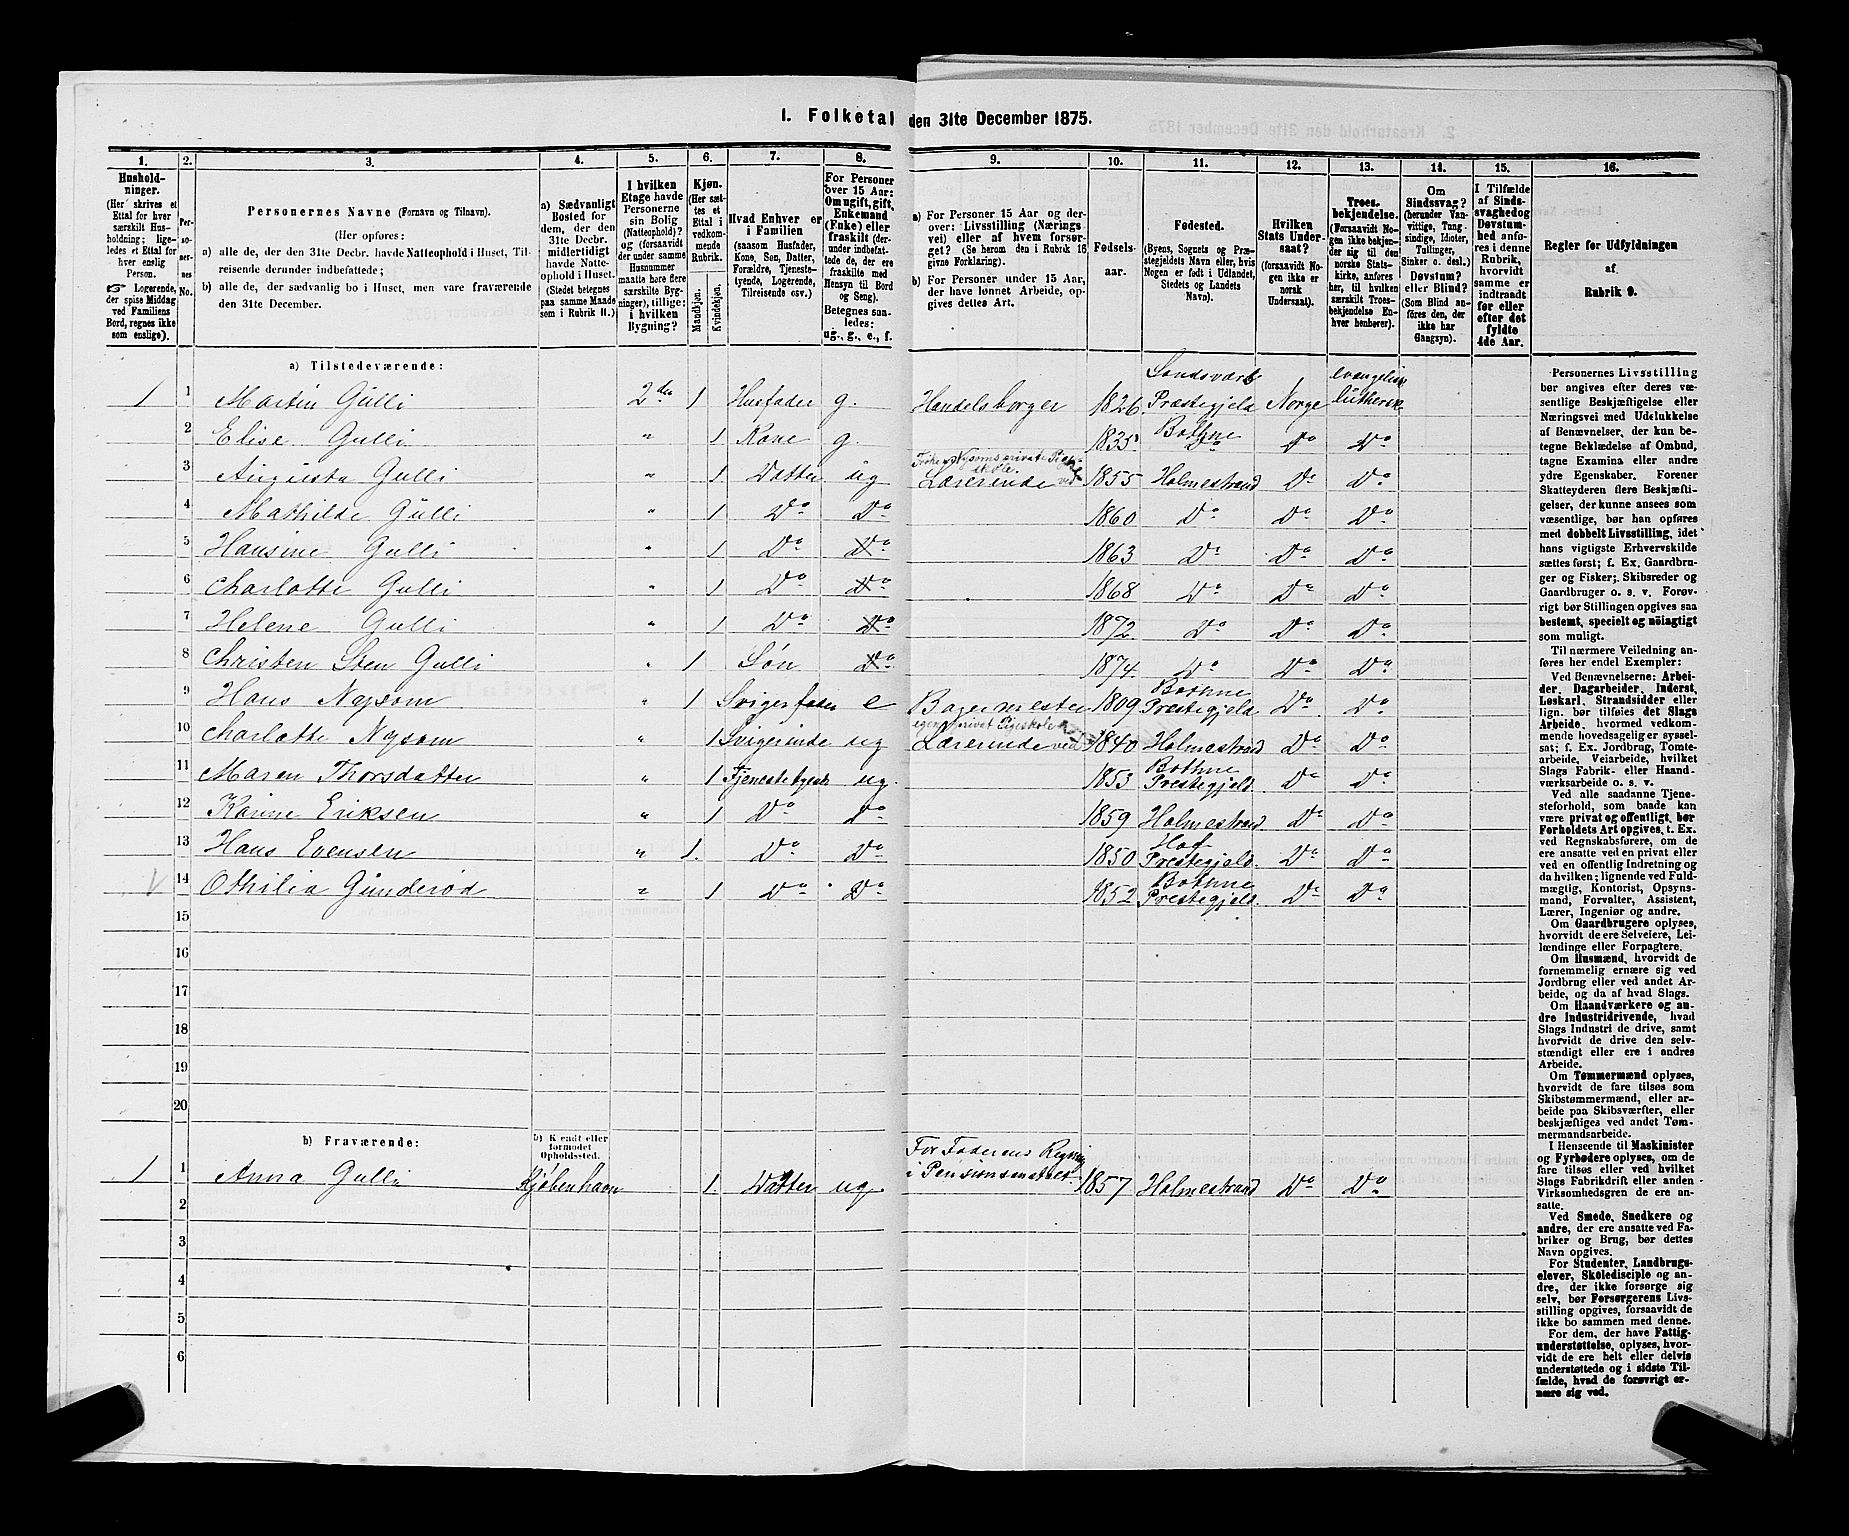 I. Folketal den 31te December 1875.
1. 2. 3. 4. 5. 6. 7. 8. 9. 10. 11. 12. 13. 14. 15. 16.
Husholdninger.
(Her skrives et
Ettal for hver
særskilt Husholdning;
ligeledes et Ettal for
hver enslig
Person.
☞ Logerende,
der spise Middag
ved Familiens
Bord, regnes ikke
som enslige).
Personernes
No.
Personernes Navne (Fornavn og Tilnavn).
(Her opføres:
a) alle de, der den 31te Decbr. havde Natteophold i Huset, Tilreisende derunder indbefattede;
b) alle de, der sædvanlig bo i Huset, men vare fraværende
den 31te December.
a) Sædvanligt
Bosted for
dem, der den
31te Decbr.
midlertidigt
havde Natteophold i Huset.
(Stedet betegnes
paa samme Maade
som i Rubrik 11.)
I hvilken
Etage havde
Personerne
sin Bolig
(Natteophold)?
og (forsaavidt
der under samme
Husnummer
maatte høre flere
særskilte Bygninger), tillige:
i hvilken
Bygning?
Kjøn.
(Her sættes et
Ettal i
vedkommende
Rubrik.
Mandkjøn.
Kvindekjøn.
Hvad Enhver er
i Familien
(saasom Husfader,
Kone, Søn, Datter,
Forældre, Tjenestetyende, Logerende,
Tilreisende osv.)
For Personer
over 15 Aar:
Om ugift, gift,
Enkemand
(Enke) eller
fraskilt (derunder indbefattede de, der ere
fraskilte med
Hensyn til Bord
og Seng).
Betegnes saaledes:
ug., g., e., f.
a) For Personer 15 Aar og derover: Livsstilling (Næringsvei) eller af hvem forsørget? (Se herom den i Rubrik 16
givne Forklaring).
b) For Personer under 15 Aar,
der have lønnet Arbeide, opgives dettes Art.
Fødselsaar.
Fødested.
(Byens, Sognets og Præstegjeldets Navn eller, hvis
Nogen er født i Udlandet,
Stedets og Landets
Navn).
Hvilken
Stats Undersaat?
(forsaavidt Nogen ikke er
norsk
Undersaat).
Troesbekjendelse.
(Forsaavidt Nogen ikke bekjender sig til den
norske Statskirke, anføres
her, til hvilken
særskilt Troesbekjendelse Enhver henhører).
Om
Sindssvag?
(herunder Vanvittige, Tungsindige, Idioter,
Tullinger,
Sinker o. desl.)
Døvstum?
eller Blind?
(Som Blind anføres den, der
ikke har
Gangsyn).
I Tilfælde
af Sindssvaghed og
Døvstumhed anføres i denne
Rubrik,
hvorvidt
samme er
indtraadt
før eller
efter det
fyldte
4de Aar.
Regler for Udfyldningen
af
Rubrik 9.
a) Tilstedeværende:
1 1 Martin Gulli 2den 1 Husfader g. Handelsborger 1826 Sandsværs Præstegjeld Norge evangelisk luthersk
2 Elise Gulli " 1 Kone g. 1835 Bothne Do Do Do
3 Augusta Gulli " 1 Datter ug Lærerinde ved Frøken Nysoms private Pigeskole. 1855 Holmestrand Do Do
4 Mathilde Gulli " 1 Do Do 1860 Do Do Do
5 Hansine Gulli " 1 Do Do 1863 Do Do Do
6 Charlotte Gulli " 1 Do Do 1868 Do Do Do
7 Helene Gulli " 1 Do Do 1872. Do Do Do
8 Christen Sten Gulli " 1 Søn Do 1874. Do Do Do
9 Hans Nysom " 1 Svigerfader e Bagermester 1809 Bothne Prestegjeld Do Do
10 Charlotte Nysom 1 Svigerinde ug Lærerinde ved egen privat Pigeskole 1840 Holmestrand Do Do
11 Maren Thorsdatter " 1 Tjenestetyende ug. 1853 Bothne Prestegjeld. Do Do
12 Karine Eriksen " 1 Do Do 1859 Holmestrand Do Do
13 Hans Evensen " 1. Do Do 1850 Hof Prestegjeld. Do Do
14 Othilia Gunderød " 1 Do Do 1852 Bothne Prestegjeld. Do Do
15
16
17
18
19
20
b) Fraværende:
b) Kjendt eller
formodet
Opholdssted.
1 1 Anna Gulli Kjøbenhavn 1. Datter ug. For Faderens Regning i Pensionsanstalt. 1857 Holmestrand Do Do
2
3
4
5
6
Personernes Livsstilling
bør angives efter deres væsentlige Beskjæftigelse eller
Næringsvei med Udelukkelse
af Benævnelser, der kun betegne Beklædelse af Ombud,
tagne Examina eller andre
ydre Egenskaber. Forener
Skatteyderen flere Beskjæftigelser, der kunne ansees som
væsentlige, bør han opføres
med dobbelt Livsstilling, idet
hans vigtigste Erhvervskilde
sættes først; f. Ex. Gaardbruger og Fisker; Skibsreder og
Gaardbruger o. s. v. Forøvrigt bør Stillingen opgives saa
bestemt, specielt og nøiagtigt
som muligt.
Til nærmere Veiledning anføres her endel Exempler:
Ved Benævnelserne: Arbeider, Dagarbeider, Inderst,
Løskarl, Strandsidder eller
lign. bør tilføies det Slags
Arbeide, hvormed vedkommende hovedsagelig er sysselsat; f. Ex. Jordbrug, Tomtearbeide, Veiarbeide, hvilket
Slags Fabrik- eller Haandværksarbeide o. s. v.
Ved alle saadanne Tjenesteforhold, som baade kan
være privat og offentligt, bør
Forholdets Art opgives, t. Ex.
ved Regnskabsførere, om de
ere ansatte ved en privat eller
ved en offentlig Indretning og
da hvilken; lignende ved Fuldmægtig, Kontorist, Opsynsmand, Forvalter, Assistent,
Lærer, Ingeniør og andre.
Om Gaardbrugere oplyses,
hvorvidt de ere Selveiere, Leilændinge eller Forpagtere.
Om Husmænd, hvorvidt de
fornemmelig ernære sig ved
Jordbrug eller ved andet Arbeide, og da af hvad Slags.
Om Haandværkere og andre Industridrivende, hvad
Slags Industri de drive, samt
hvorvidt de drive den selvstændigt eller ere i andres
Arbeide.
Om Tømmermænd oplyses,
hvorvidt de fare tilsøs som
Skibstømmermænd, eller arbeide paa Skibsværfter, eller
beskjæftiges ved andet Tømmermandsarbeide.
I Henseende til Maskinister
og Fyrbødere oplyses, om de
fare tilsøs eller ved hvilket
Slags Fabrikdrift eller anden
Virksomhedsgren de ere ansatte.
Ved Smede, Snedkere og
andre, der ere ansatte ved Fabriker og Brug, bør dettes
Navn opgives.
For Studenter, Landbrugselever, Skoledisciple og andre, der ikke forsørge sig
selv, bør Forsørgerens Livsstilling opgives, forsaavidt de
ikke bo sammen med denne.
For dem, der have Fattigunderstøttelse, oplyses, hvorvidt de ere helt eller delvis
understøttede og i sidste Tilfælde, hvad de forøvrigt ernære sig ved.